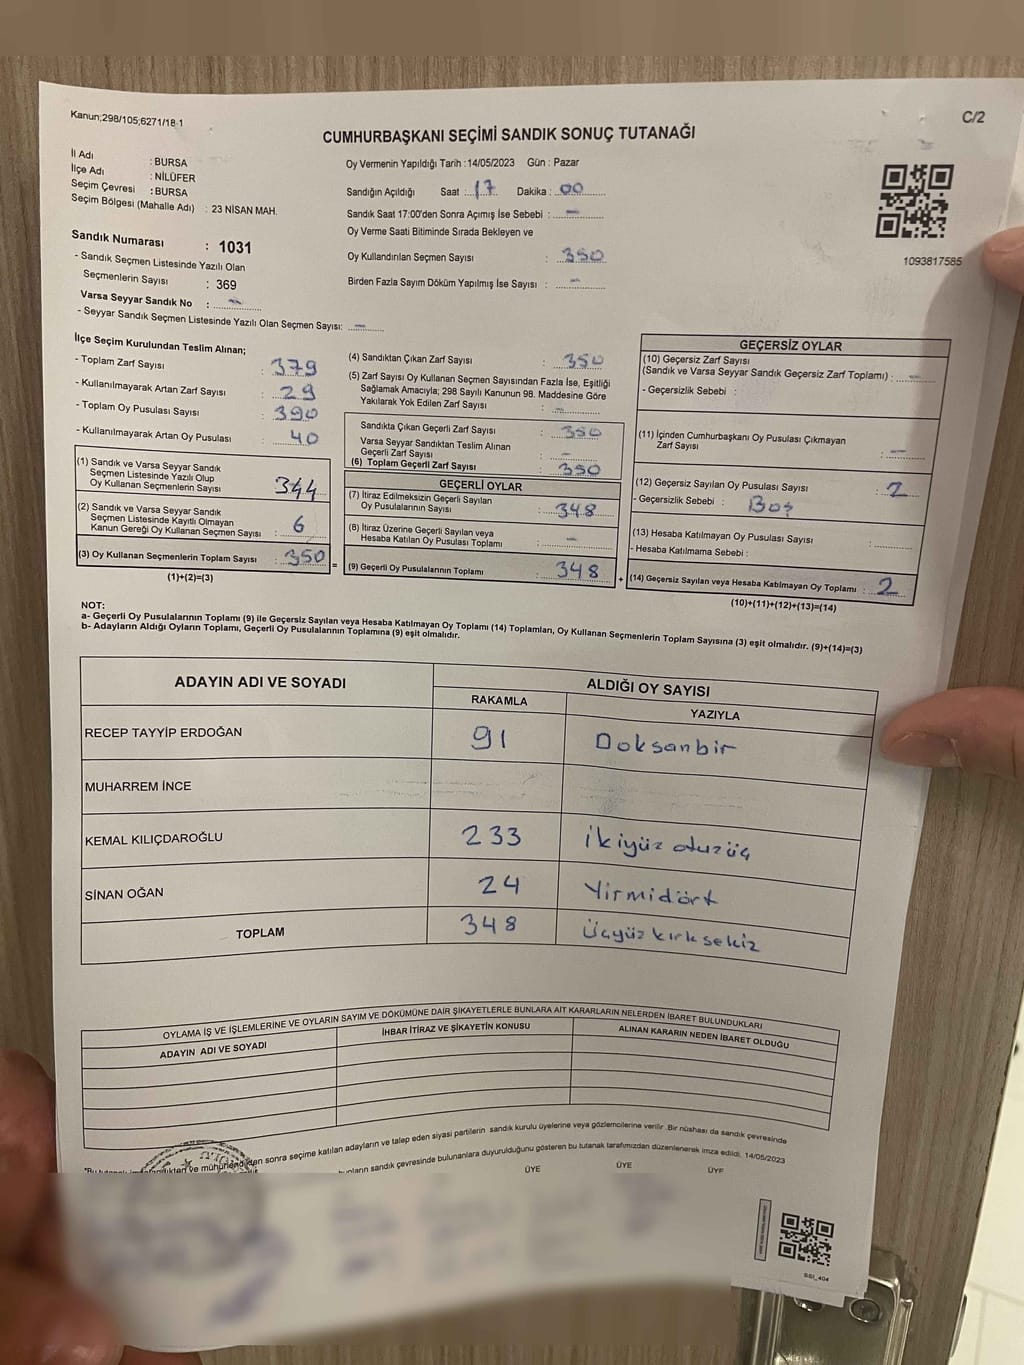 Kanun;298/105;6271/18-1
C/2
CUMHURBAŞKANI SEÇİMİ SANDIK SONUÇ TUTANAĞI
İl Adı : BURSA
İlçe Adı : NİLÜFER
Seçim Çevresi : BURSA
Seçim Bölgesi (Mahalle Adı) : 23 NİSAN MAH.
Sandık Numarası : 1031
- Sandık Seçmen Listesinde Yazılı Olan
Seçmenlerin Sayısı : 369
Varsa Seyyar Sandık No : -
- Seyyar Sandık Seçmen Listesinde Yazılı Olan Seçmen Sayısı: -
Oy Vermenin Yapıldığı Tarih :14/05/2023 Gün : Pazar
Sandığın Açıldığı Saat : 17 Dakika : 00
Sandık Saat 17:00'den Sonra Açımış İse Sebebi : -
Oy Verme Saati Bitiminde Sırada Bekleyen ve
Oy Kullandırılan Seçmen Sayısı : 350
Birden Fazla Sayım Döküm Yapılmış İse Sayısı : -
1093817585
İlçe Seçim Kurulundan Teslim Alınan;
- Toplam Zarf Sayısı : 379
- Kullanılmayarak Artan Zarf Sayısı : 29
- Toplam Oy Pusulası Sayısı : 390
- Kullanılmayarak Artan Oy Pusulası : 40
(1) Sandık ve Varsa Seyyar Sandık
Seçmen Listesinde Yazılı Olup
Oy Kullanan Seçmenlerin Sayısı : 344
(2) Sandık ve Varsa Seyyar Sandık
Seçmen Listesinde Kayıtlı Olmayan
Kanun Gereği Oy Kullanan Seçmen Sayısı : 6
(3) Oy Kullanan Seçmenlerin Toplam Sayısı : 350 =
(1)+(2)=(3)
(4) Sandıktan Çıkan Zarf Sayısı : 350
(5) Zarf Sayısı Oy Kullanan Seçmen Sayısından Fazla İse, Eşitliği
Sağlamak Amacıyla; 298 Sayılı Kanunun 98. Maddesine Göre
Yakılarak Yok Edilen Zarf Sayısı : -
Sandıkta Çıkan Geçerli Zarf Sayısı : 350
Varsa Seyyar Sandıktan Teslim Alınan
Geçerli Zarf Sayısı : -
(6) Toplam Geçerli Zarf Sayısı : 350
GEÇERLİ OYLAR
(7) İtiraz Edilmeksizin Geçerli Sayılan
Oy Pusulalarının Sayısı : 348
(8) İtiraz Üzerine Geçerli Sayılan veya
Hesaba Katılan Oy Pusulası Toplamı : -
(9) Geçerli Oy Pusulalarının Toplamı : 348 +
GEÇERSİZ OYLAR
(10) Geçersiz Zarf Sayısı
(Sandık ve Varsa Seyyar Sandık Geçersiz Zarf Toplamı) : -
- Geçersizlik Sebebi :
(11) İçinden Cumhurbaşkanı Oy Pusulası Çıkmayan
Zarf Sayısı : -
(12) Geçersiz Sayılan Oy Pusulası Sayısı : 2
- Geçersizlik Sebebi : Boş
(13) Hesaba Katılmayan Oy Pusulası Sayısı :
- Hesaba Katılmama Sebebi :
(14) Geçersiz Sayılan veya Hesaba Katılmayan Oy Toplamı : 2
(10)+(11)+(12)+(13)=(14)
NOT:
a- Geçerli Oy Pusulalarının Toplamı (9) ile Geçersiz Sayılan veya Hesaba Katılmayan Oy Toplamı (14) Toplamları, Oy Kullanan Seçmenlerin Toplam Sayısına (3) eşit olmalıdır. (9)+(14)=(3)
b- Adayların Aldığı Oyların Toplamı, Geçerli Oy Pusulalarının Toplamına (9) eşit olmalıdır.
ADAYIN ADI VE SOYADI
ALDIĞI OY SAYISI
RAKAMLA YAZIYLA
RECEP TAYYİP ERDOĞAN 91 Doksanbir
MUHARREM İNCE
KEMAL KILIÇDAROĞLU 233 ikiyüz otuzüç
SİNAN OĞAN 24 Yirmidört
TOPLAM 348 Üçyüz kırksekiz
OYLAMA İŞ VE İŞLEMLERİNE VE OYLARIN SAYIM VE DÖKÜMÜNE DAİR ŞİKAYETLERLE BUNLARA AİT KARARLARIN NELERDEN İBARET BULUNDUKLARI
ADAYIN ADI VE SOYADI İHBAR İTİRAZ VE ŞİKAYETİN KONUSU ALINAN KARARIN NEDEN İBARET OLDUĞU
ve mühürlendikten sonra seçime katılan adayların ve talep eden siyasi partilerin sandık kurulu üyelerine veya gözlemcilerine verilir. Bir nüshası da sandık çevresinde
sandık çevresinde bulunanlara duyurulduğunu gösteren bu tutanak tarafımızdan düzenlenerek imza edildi. 14/05/2023
ÜYE ÜYE ÜYE
SSI_404